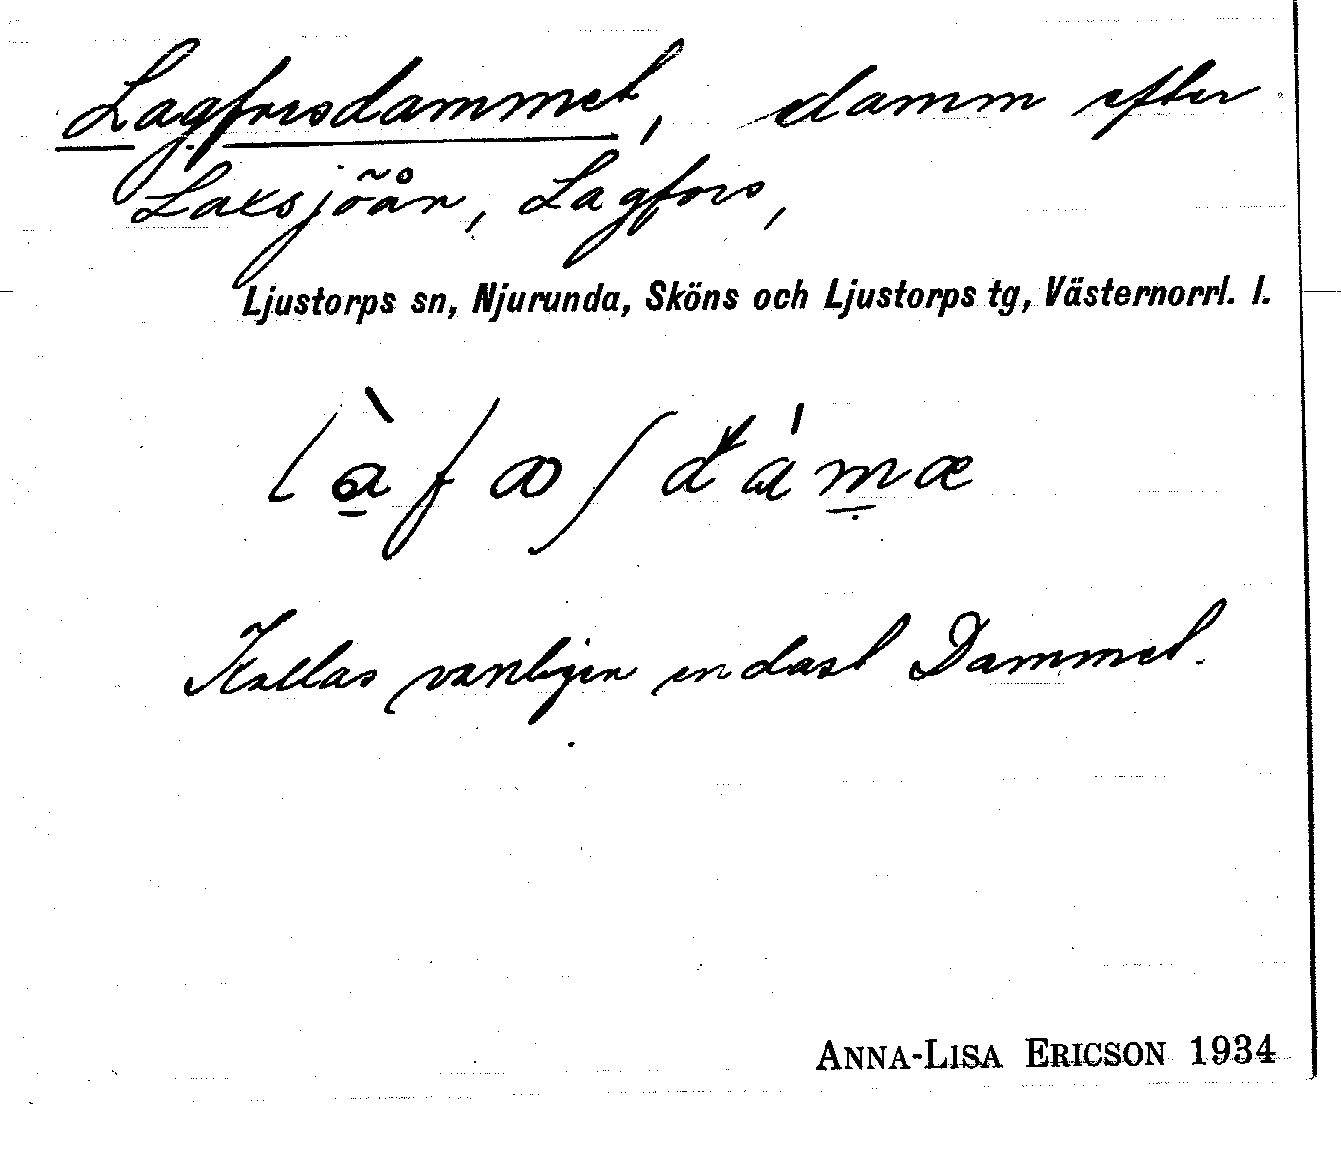 Lagforsdammet, damm efter
Laksjöån, Lagfors,
Ljustorps sn, Njurunda, Sköns och Ljustorps tg, Västernorrl. l.
Kallas vanligen endast Dammet.
ANNA-LISA ERICSON 1934